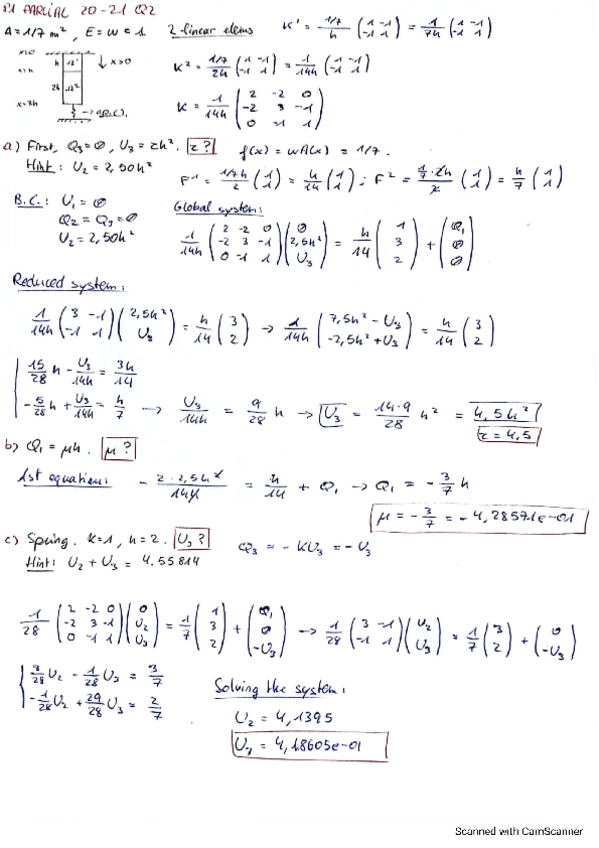 P1 PARCIAL 20-21 Q2
A = 1/7 m², E = W = 1 2 linear elems K¹ = (1/7)/h (1 -1; -1 1) = 1/7h (1 -1; -1 1)
x=0 h Ω¹ ↓ x>0
x=h 2h Ω²
x=3h
K² = (1/7)/2h (1 -1; -1 1) = 1/14h (1 -1; -1 1)
K = 1/14h (2 -2 0; -2 3 -1; 0 -1 1)
a) First, Q₃=0, U₃ = zh². z? f(x) = WA(x) = 1/7.
Hint: U₂ = 2,50h²
F¹ = (1/7 h)/2 (1; 1) = h/14 (1; 1); F² = (1/7 · 2h)/2 (1; 1) = h/7 (1; 1)
B.C.: U₁ = 0
Q₂ = Q₃ = 0
U₂ = 2,50h²
Global system:
1/14h (2 -2 0; -2 3 -1; 0 -1 1) (0; 2,5h²; U₃) = h/14 (1; 3; 2) + (Q₁; 0; 0)
Reduced system:
1/14h (3 -1; -1 1) (2,5h²; U₃) = h/14 (3; 2) → 1/14h (7,5h² - U₃; -2,5h² + U₃) = h/14 (3; 2)
15/28 h - U₃/14h = 3h/14
-5/28 h + U₃/14h = h/7 → U₃/14h = 9/28 h → U₃ = 14·9/28 h² = 4,5h²
z = 4,5
b) Q₁ = μh. μ?
1st equation: - 2·2,5h²/14h = h/14 + Q₁ → Q₁ = -3/7 h
μ = -3/7 = -4,28571e-01
c) Spring. k=1, h=2. U₃? Q₃ = -KU₃ = -U₃
Hint: U₂ + U₃ = 4.55814
1/28 (2 -2 0; -2 3 -1; 0 -1 1) (0; U₂; U₃) = 1/7 (1; 3; 2) + (Q₁; 0; -U₃) → 1/28 (3 -1; -1 1) (U₂; U₃) = 1/7 (3; 2) + (0; -U₃)
3/28 U₂ - 1/28 U₃ = 3/7
-1/28 U₂ + 29/28 U₃ = 2/7
Solving the system:
U₂ = 4,1395
U₃ = 4,18605e-01
Scanned with CamScanner